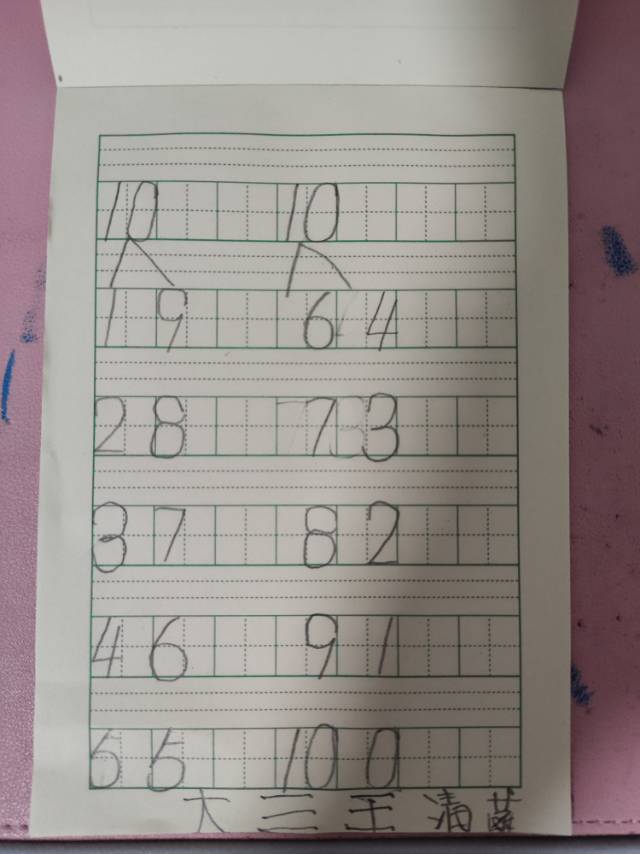 10 10
1 9 6 4
2 8 7 3
3 7 8 2
4 6 9 1
5 5 10 0
大 三 王 清